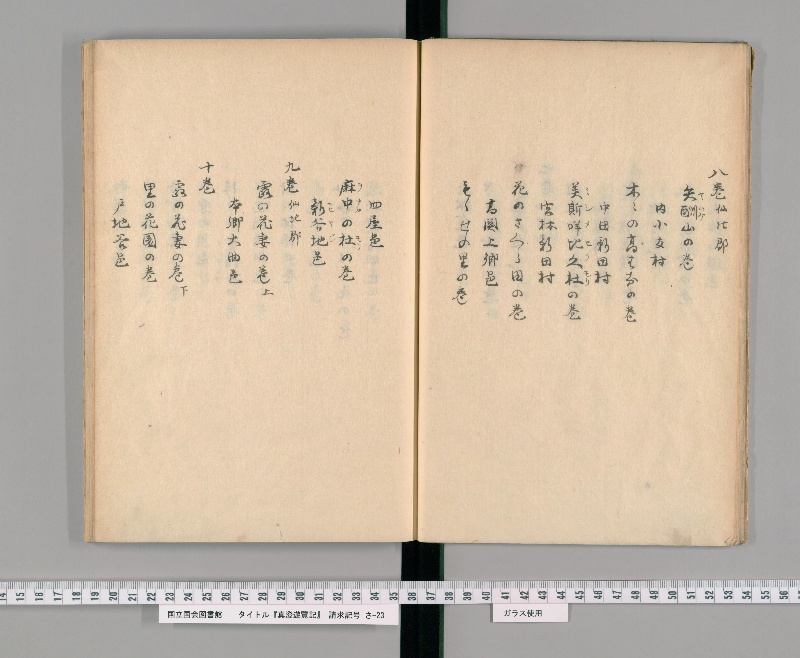 八巻仙北郡
山の巻
内小友村
木々の高すゑの巻
中田新田村
美斯咩比之杜の巻
宮林新田村
花のさくら田の巻
高関上郷邑
里の巻
四屋邑
麻中の杜の巻
新谷地邑
九巻仙北郡
露の花妻の巻上
本郷大曲邑
十巻
露の花妻の巻下
里の花園の巻
戸地谷邑
14 15 16 17 18 19 20 21 22 23 24 25 26 27 28 29 30 31 32 33 34 35 36 37 38 39 40 41 42 43 44 45 46 47 48 49 50 51 52 53 54 55 56
国立国会図書館 タイトル『真澄遊覽記』 請求記号 さ-23
ガラス使用